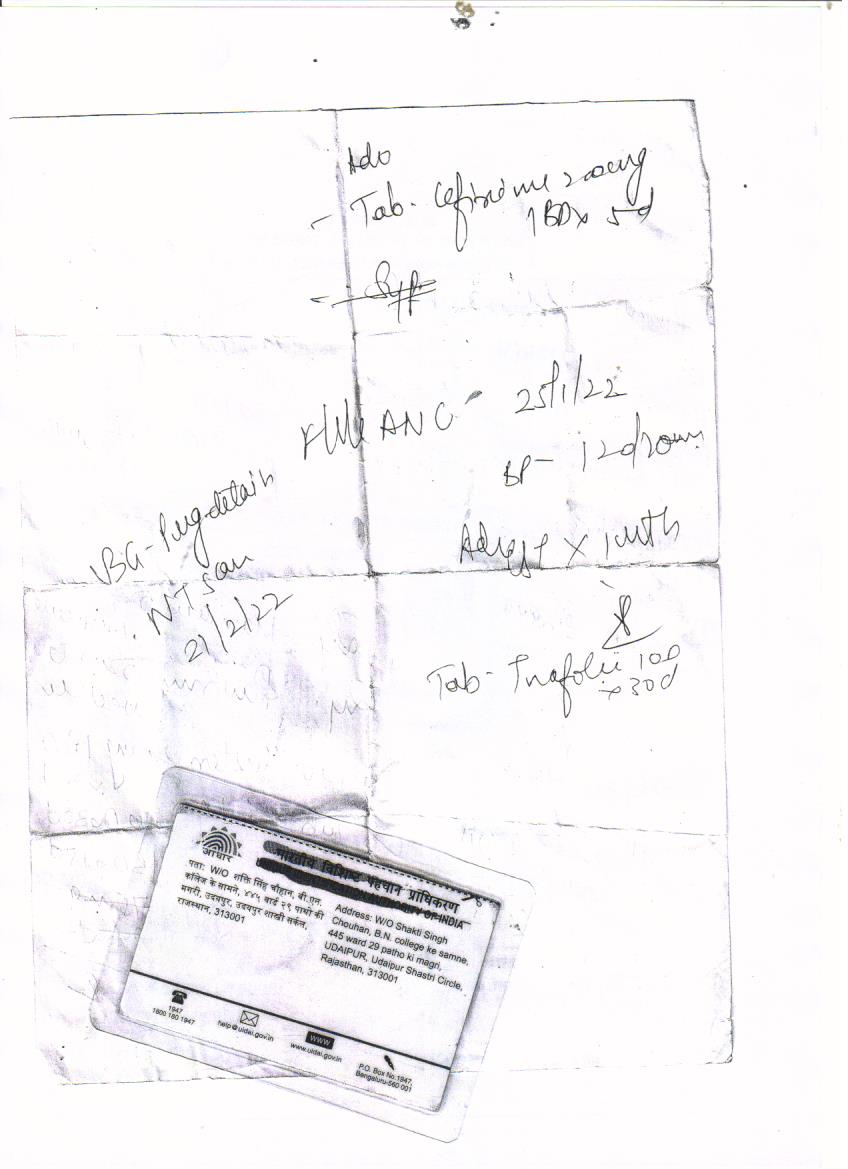 Adv
- Tab. Cefixime 200mg
1 BD x 5d
- Syp
F/U ANC - 25/1/22
BP -
USG - Preg. details
NT Scan
21/2/22
x 1 mth
Tab - 1 OD
x 30d
आधार
भारतीय विशिष्ट पहचान प्राधिकरण
OF INDIA
पता: W/O शक्ति सिंह चौहान, बी.एन.
कॉलेज के सामने, ४४५ वार्ड २९ पाथो की
मगरी, उदयपुर, उदयपुर शास्त्री सर्कल,
राजस्थान, 313001
Address: W/O Shakti Singh
Chouhan, B.N. college ke samne,
445 ward 29 patho ki magri,
UDAIPUR, Udaipur Shastri Circle,
Rajasthan, 313001
1947
1800 180 1947
help@uidai.gov.in
www
www.uidai.gov.in
P.O. Box No.1947,
Bengaluru-560 001